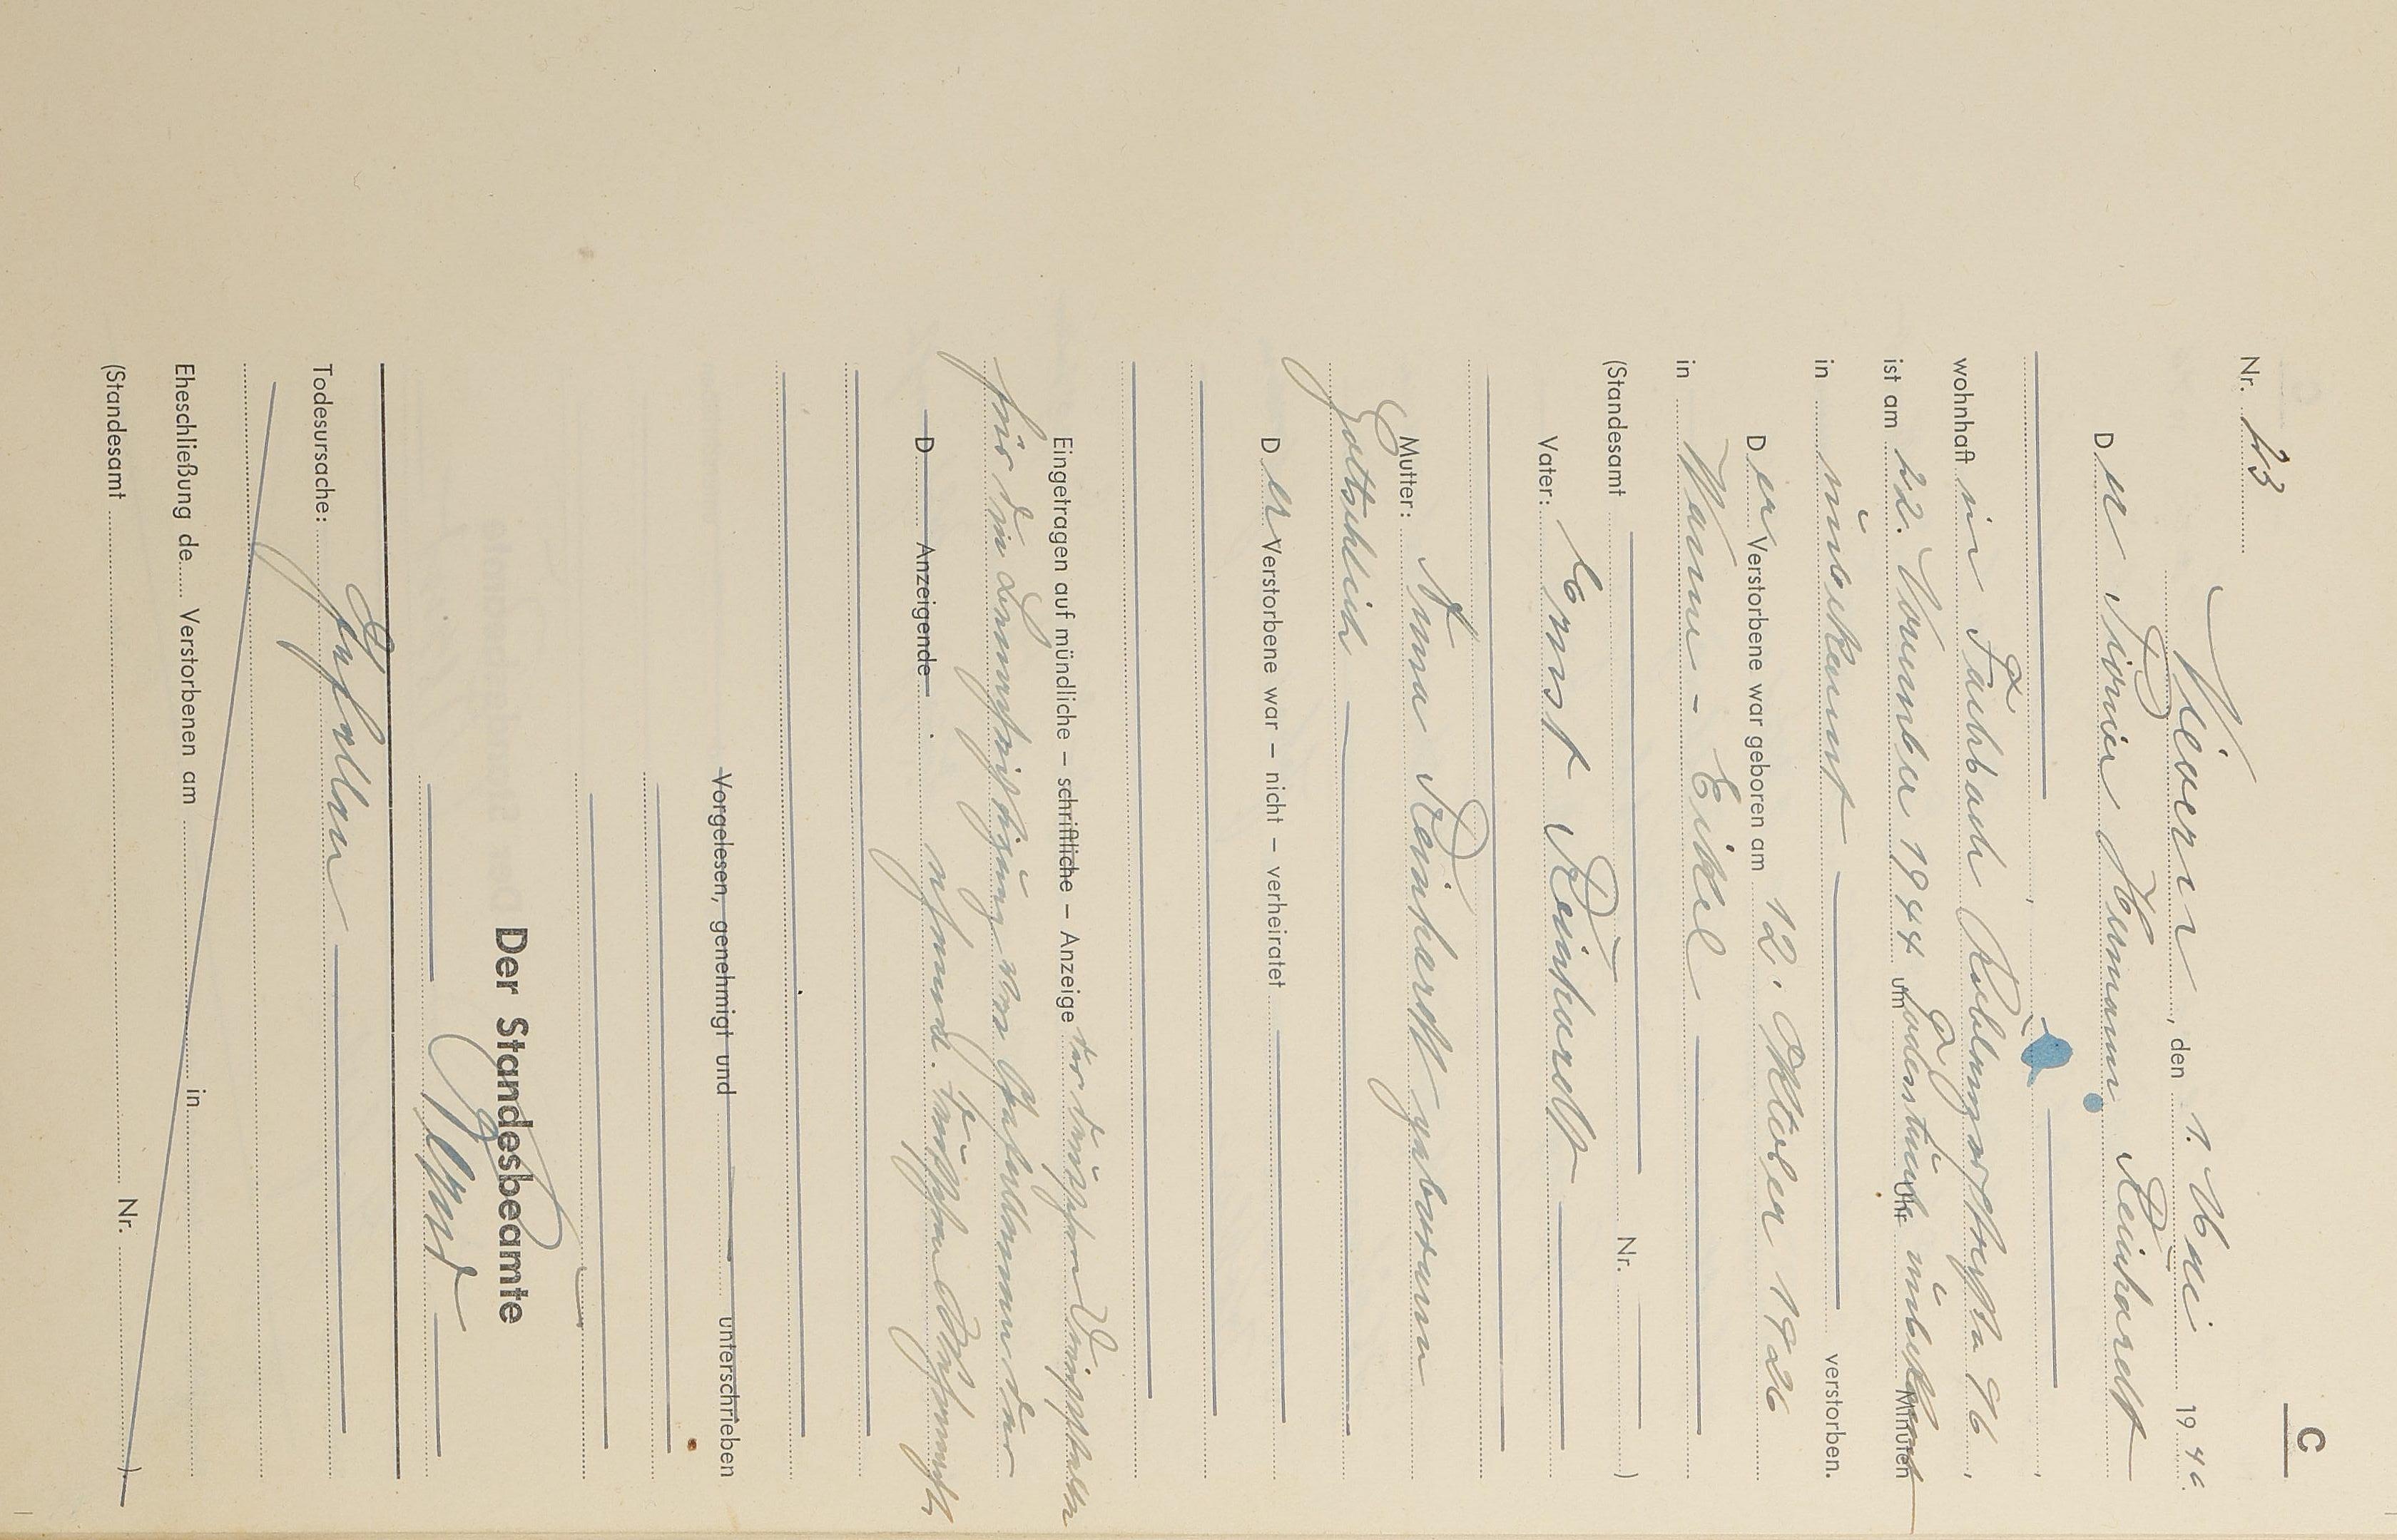 C
Nr. 23
Viöern, den 1. Mai 1946.
Der Horier Hermann Reinhardt
wohnhaft in Fachbach Koblenzerstraße 96,
ist am 22. November 1944 um Todesstunde Uhr unbekannt Minuten
in unbekannt verstorben.
Der Verstorbene war geboren am 12. Oktober 1926
in Wanne - Eikel
(Standesamt Nr. )
Vater: Ernst Reinhardt
Mutter: Anna Reinhardt geborene
Gottschlich
Der Verstorbene war – nicht – verheiratet
Eingetragen auf mündliche – schriftliche – Anzeige der deutschen Dienststelle
für die Benachrichtigung von Gefallenen der
D Anzeigende ehem. deutschen Wehrmacht
Vorgelesen, genehmigt und unterschrieben
Der Standesbeamte
Todesursache: Gefallen
Eheschließung de Verstorbenen am in
(Standesamt Nr. )